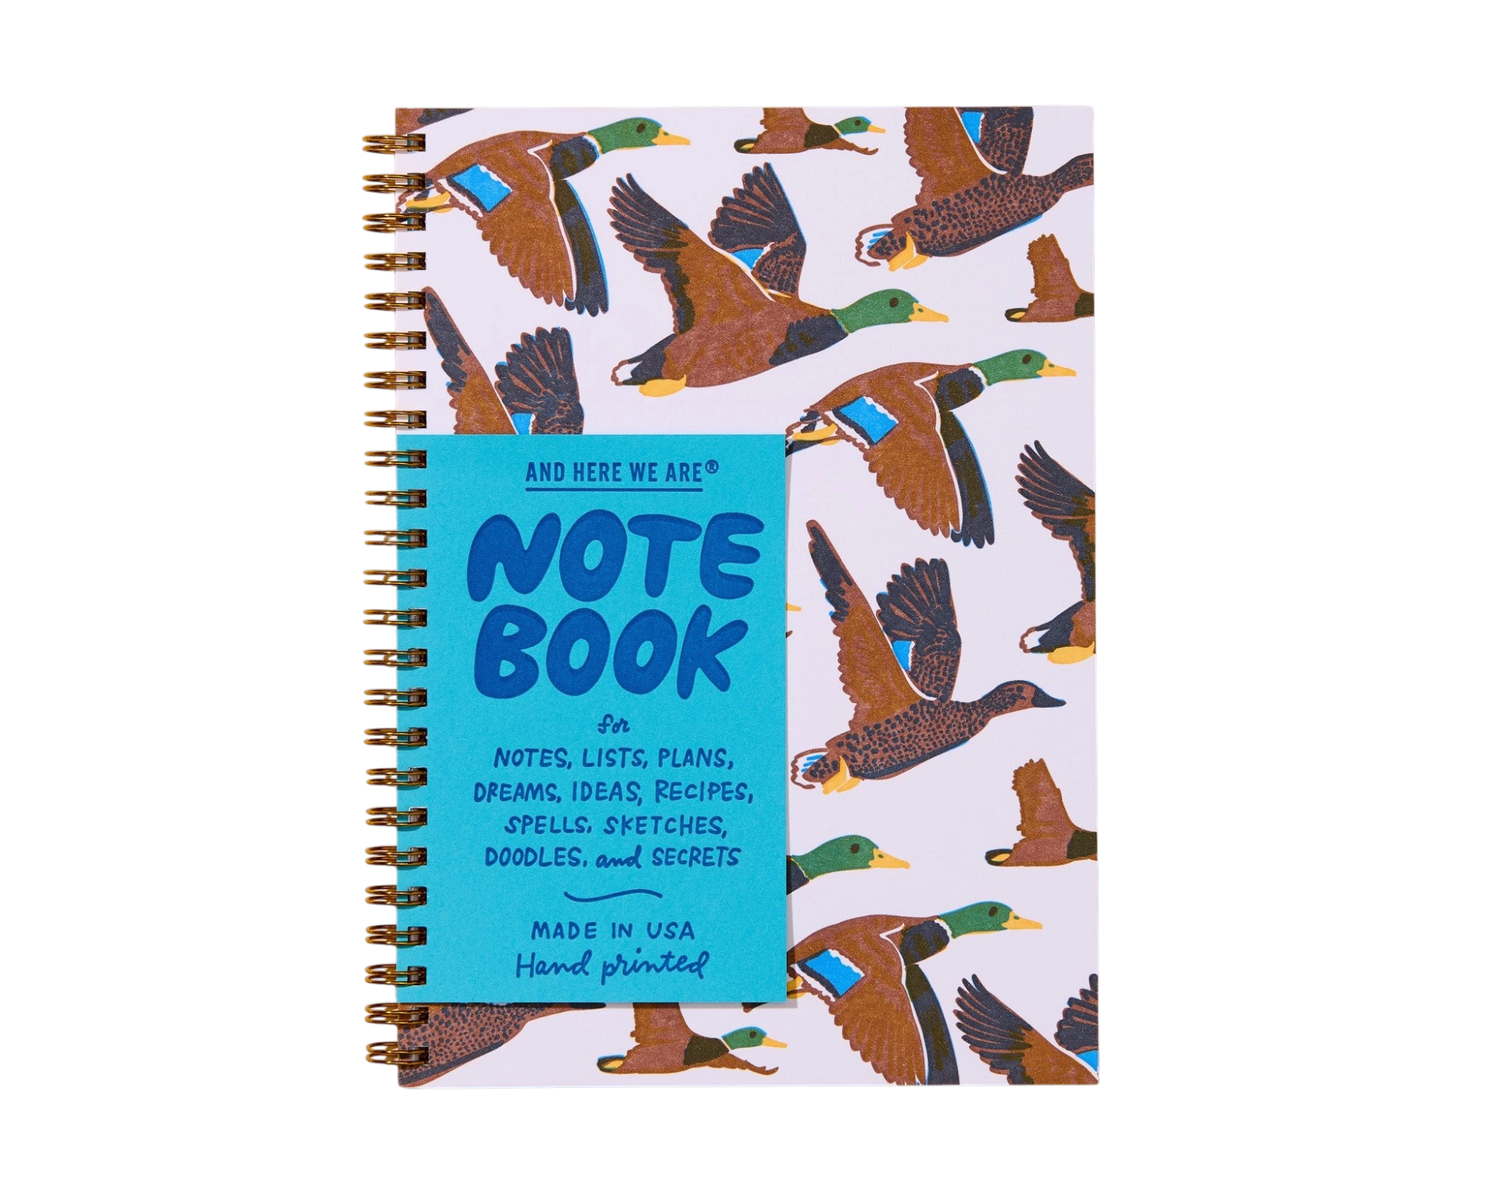 AND HERE WE ARE®
NOTE
BOOK
for
NOTES, LISTS, PLANS,
DREAMS, IDEAS, RECIPES,
SPELLS, SKETCHES,
DOODLES, and SECRETS
MADE IN USA
Hand printed